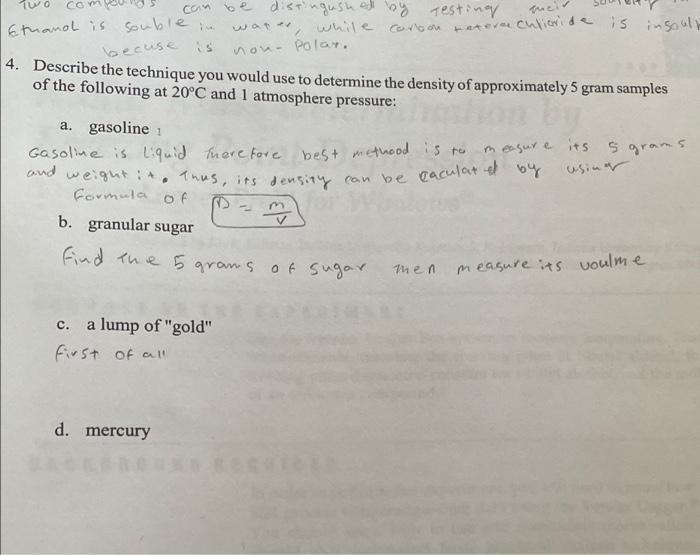 Two compounds can be distingushed by testing their
Ethanol is souble in water, while carbon chlioride is insoulu
becuse is non-polar.
4. Describe the technique you would use to determine the density of approximately 5 gram samples
of the following at 20°C and 1 atmosphere pressure:
a. gasoline
Gasoline is liquid therefore best methood is to measure its 5 grams
and weight it. Thus, its density can be caculated by using
formula of D = m/v
b. granular sugar
find the 5 grams of sugar then measure its voulme
c. a lump of "gold"
first of all
d. mercury